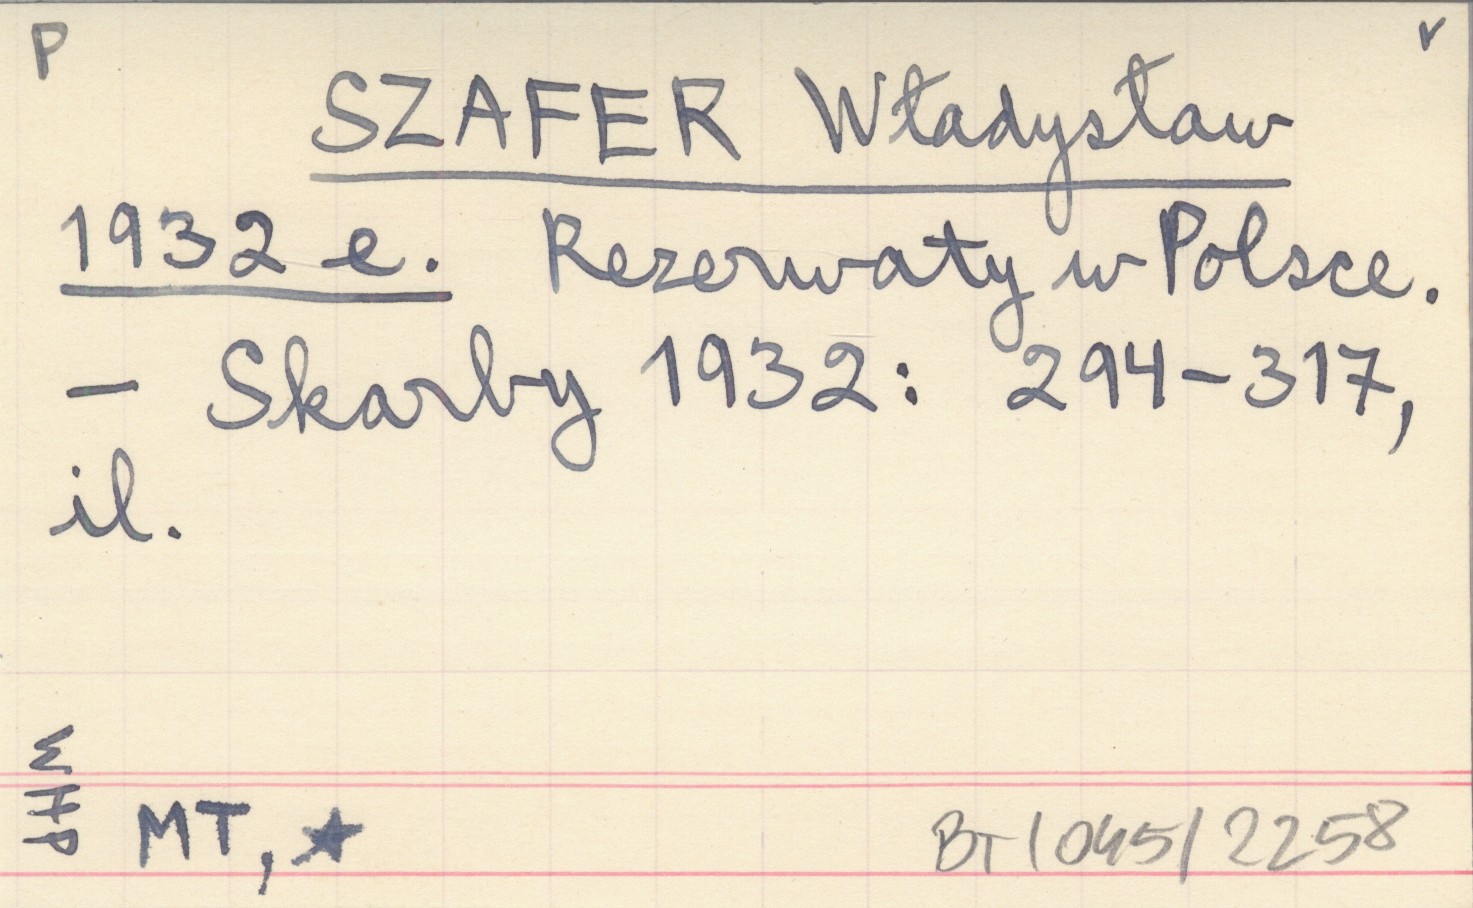 P
SZAFER Władysław
1932 e. Rezerwaty w Polsce.
— Skarby 1932: 294-317,
il.
MT, ★
BT/045/2258